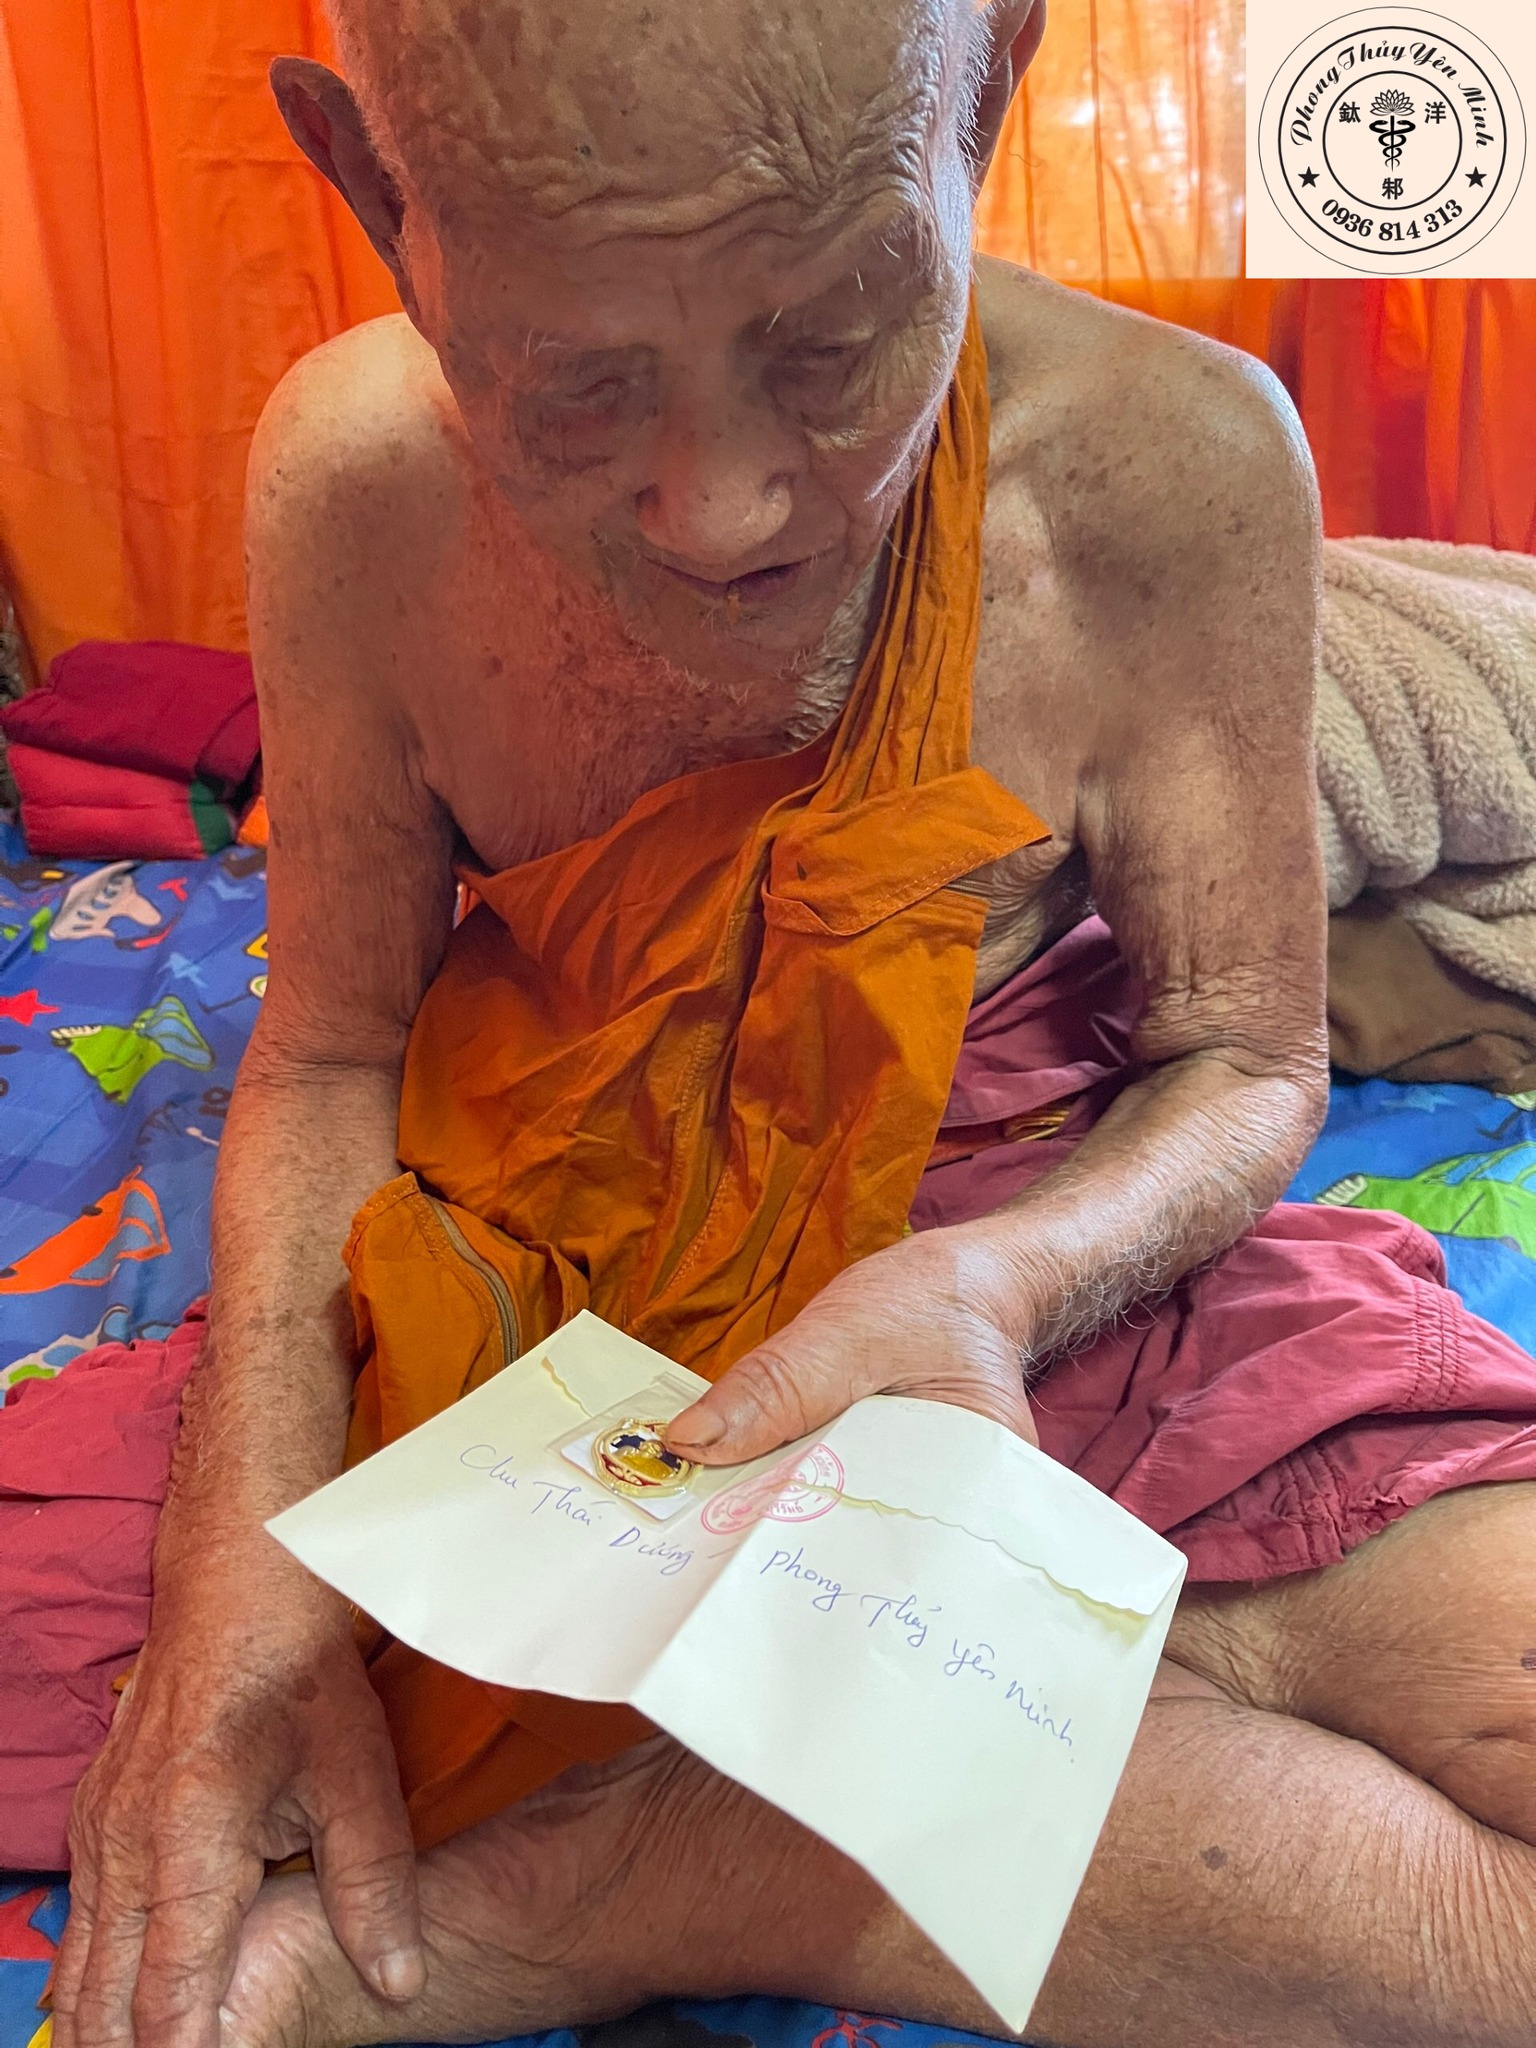 Phong Thủy Yên Minh
鈦 洋
邾
★ ★
0936 814 313
Chu Thái Dương
Phong Thủy Yên Minh.